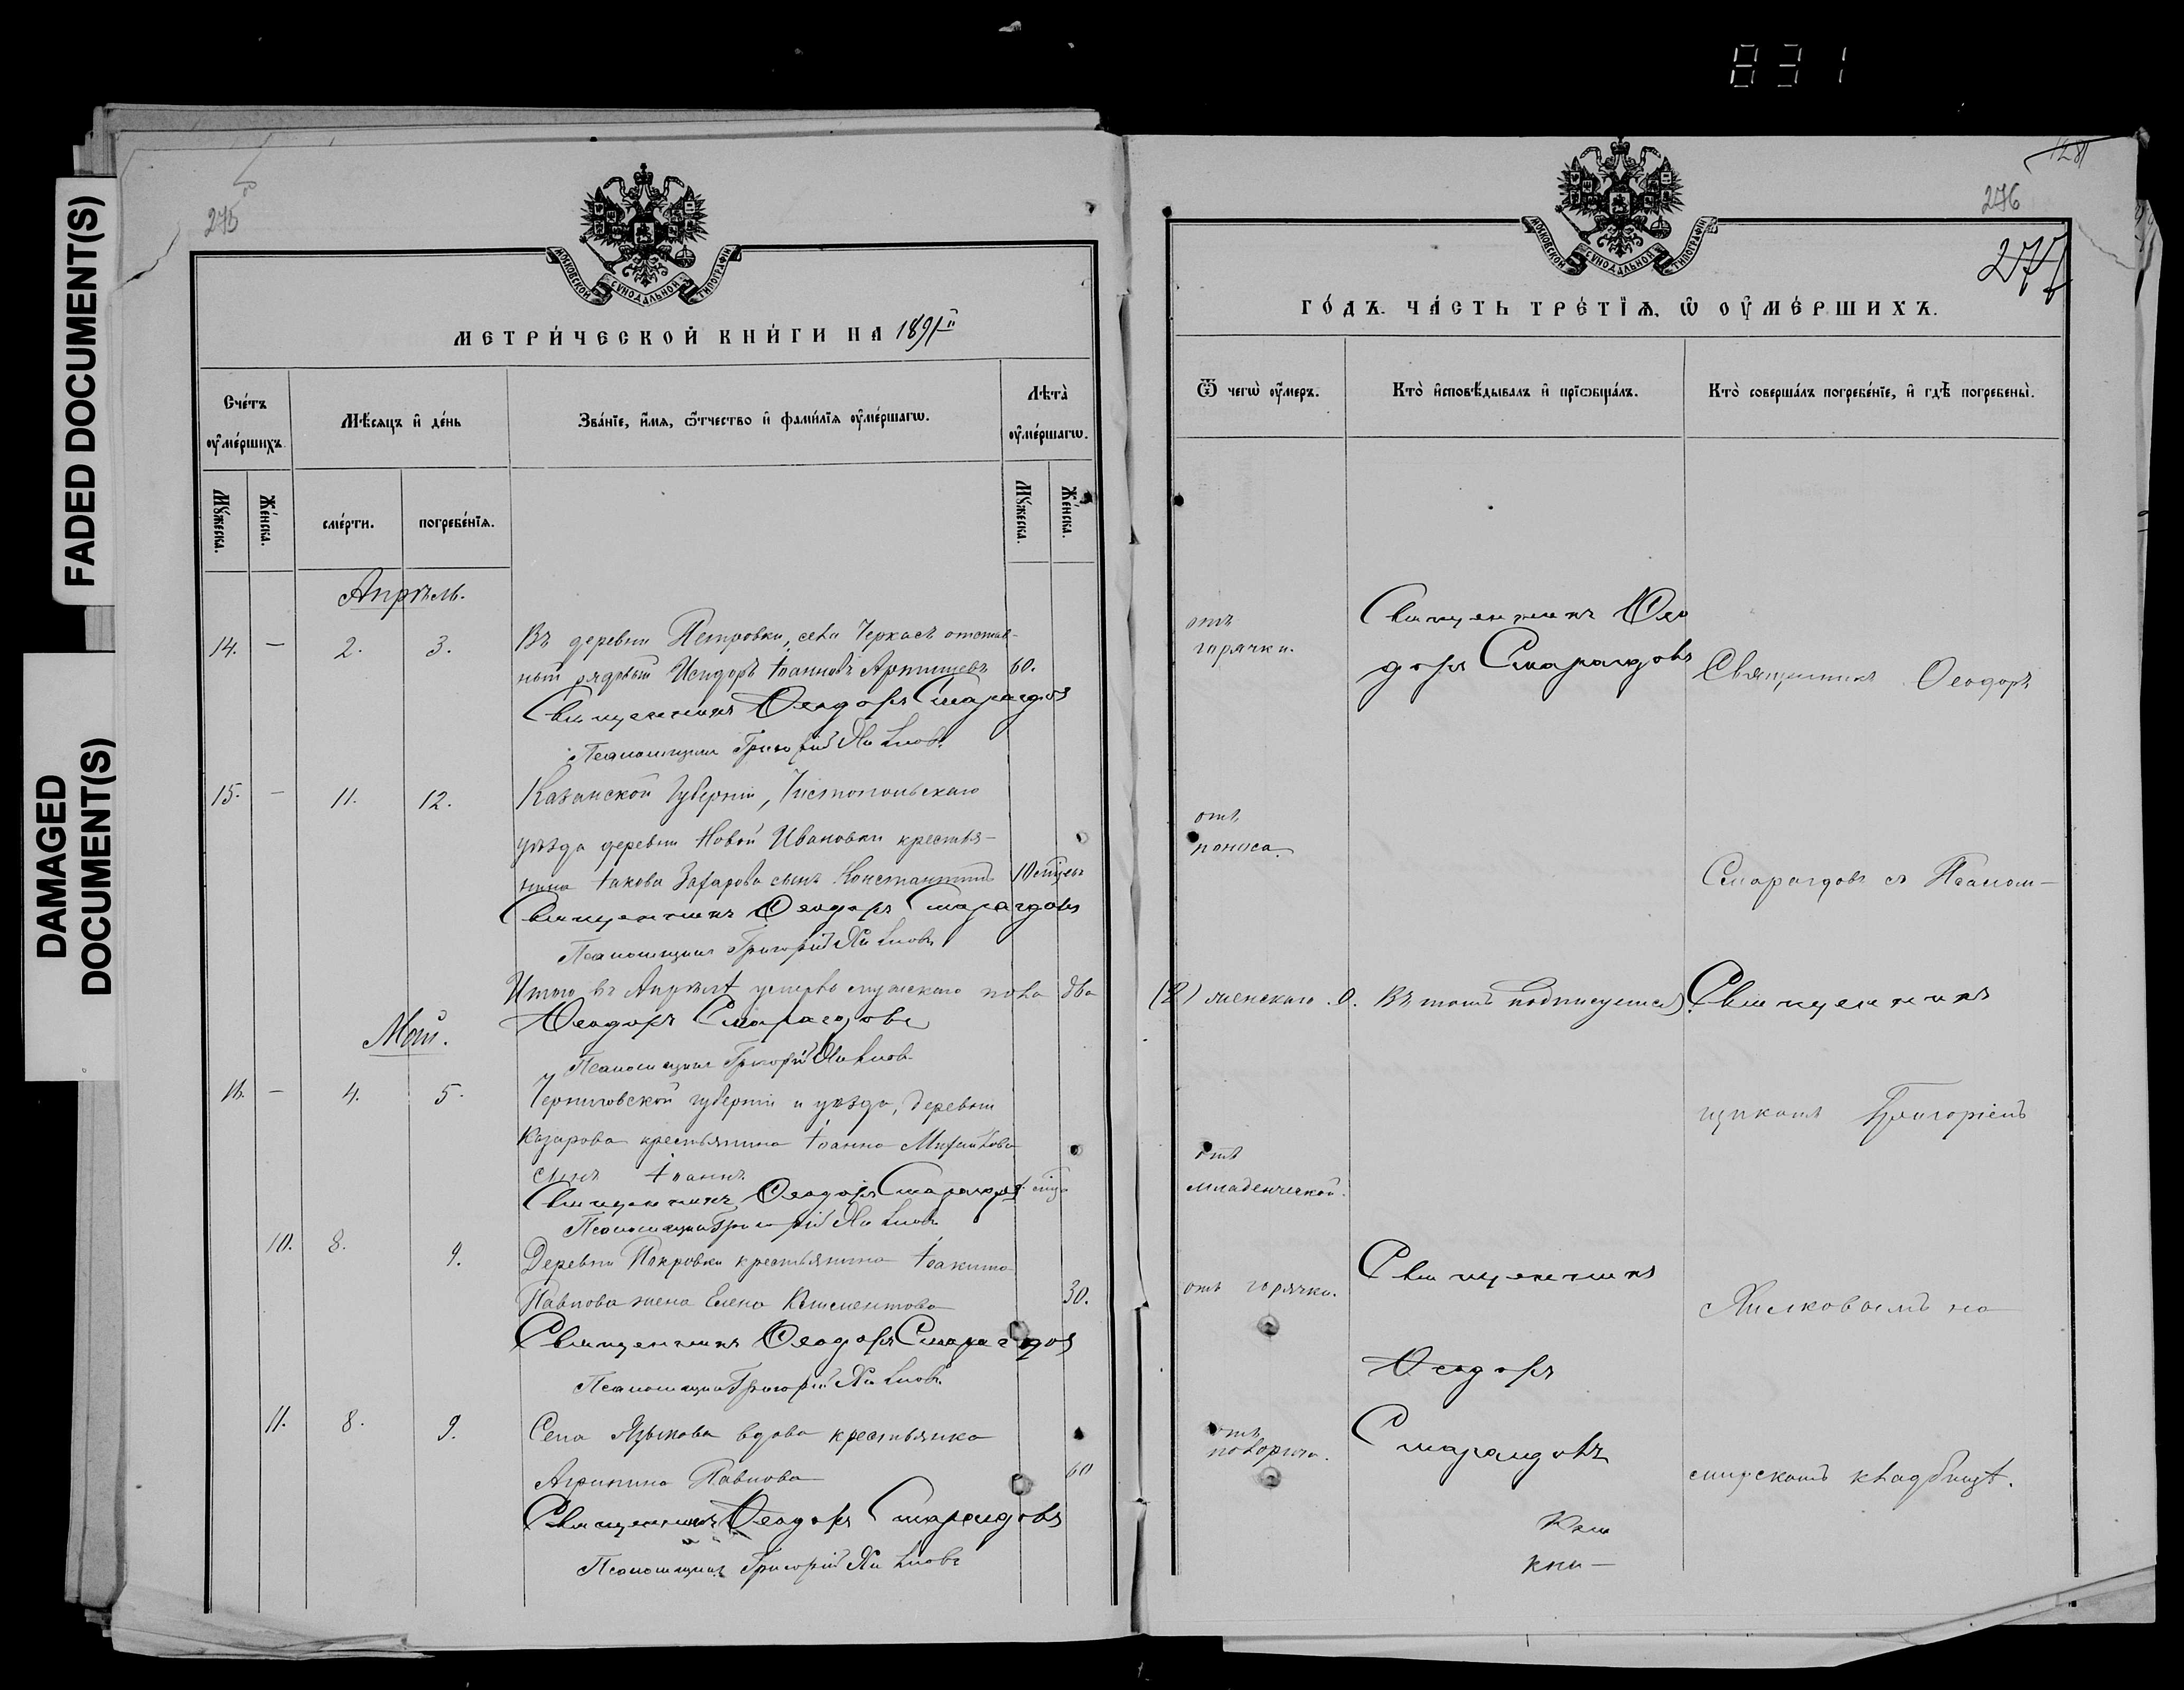 831
FADED DOCUMENT(S)
DAMAGED
DOCUMENT(S)
275
МОСКОВСКОЙ СѴНОДАЛЬНОЙ ТИПОГРАФІИ
МЕТРИ́ЧЕСКОЙ КНИ́ГИ НА 1891й
Сче́тъ ᲂу҆ме́ршихъ.
Мѣ́сяцъ и҆ де́нь
Зва́нїе, и҆́мѧ, ѻ҆́тчество и҆ фами́лїѧ ᲂу҆ме́ршагѡ.
Лѣта̀ ᲂу҆ме́ршагѡ.
Мꙋ́жеска.
Же́нска.
сме́рти.
погребе́нїѧ.
Мꙋ́жеска.
Же́нска.
Апрѣль.
14. — 2. 3. Въ деревни Петровки, села Черкасъ отстав-
ный рядовый Исидоръ Іоанновъ Артищевъ 60.
Священникъ Ѳеодоръ Смарагдов
Псаломщикъ Григорій Хилковъ
15. — 11. 12. Казанской Губерніи, Чистопольскаго
уѣзда деревни Новой Ивановки крестья-
нина Іакова Захарова сынъ Константинъ 10 мѣсяц
Священникъ Ѳеодоръ Смарагдовъ
Псаломщикъ Григорій Хилковъ
Итого въ Апрѣлѣ умерло мужскаго пола два
Ѳеодоръ Смарагдовъ
Май.
Псаломщикъ Григорій Хилковъ
16. — 4. 5. Черниговской губерніи и уѣзда, деревни
Козарова крестьянина Іоанна Михайлова
сынъ Іоаннъ
Священникъ Ѳеодоръ Смарагдов
Псаломщикъ Григорій Хилковъ
10. 8. 9. Деревни Покровки крестьянина Іоакима
Павлова жена Елена Климентова 30.
Священникъ Ѳеодоръ Смарагдов
Псаломщикъ Григорій Хилковъ
11. 8. 9. Села Языкова вдова крестьянка
Агрипина Павлова 60
Священникъ Ѳеодоръ Смарагдовъ
Псаломщикъ Григорій Хилковъ
276
277
МОСКОВСКОЙ СѴНОДАЛЬНОЙ ТИПОГРАФІИ
ГО́ДЪ. ЧА́СТЬ ТРЕ́ТЇѦ, Ѡ҆ ОУ҆МЕ́РШИХЪ.
Ѿ чегѡ̀ ᲂу҆́меръ.
Кто̀ и҆сповѣ́дывалъ и҆ прїѡбща́лъ.
Кто̀ соверша́лъ погребе́нїе, и҆ гдѣ̀ погребены̀.
отъ
горячки.
Священникъ Ѳео
доръ Смарагдовъ
Священникъ Ѳеодоръ
отъ
поноса.
Смарагдовъ съ Псалом—
(2) женскаго . 0. Въ томъ подписуемся: Священникъ
щикомъ Григоріемъ
отъ
младенческой.
отъ горячки.
Священникъ
Хилковымъ на
Ѳеодоръ
отъ
Смарагдовъ
мірскомъ кладбищѣ.